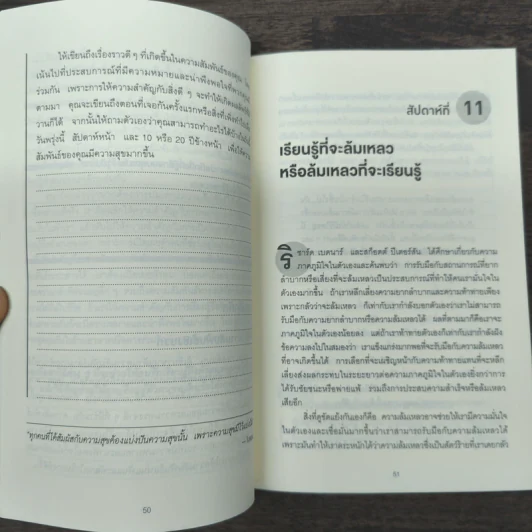 ให้เขียนถึงเรื่องราวดี ๆ ที่เกิดขึ้นในความสัมพันธ์ของคุณ
เน้นไปที่ประสบการณ์ที่มีความหมายและน่าพึงพอใจที่
ร่วมกัน เพราะการให้ความสำคัญกับสิ่งดี ๆ จะทำให้เกิด
ตามมา คุณจะเขียนถึงตอนที่เจอกันครั้งแรกหรือสิ่งที่เพิ่งทำ
วานก็ได้ จากนั้นให้ถามตัวเองว่าคุณสามารถทำอะไรได้บ้าง
วันพรุ่งนี้ สัปดาห์หน้า และ 10 หรือ 20 ปีข้างหน้า เพื่อให้
สัมพันธ์ของคุณมีความสุขมากขึ้น
"ทุกคนที่ได้สัมผัสกับความสุขต้องแบ่งปันความสุขนั้น เพราะความสุข
50
สัปดาห์ที่ 11
เรียนรู้ที่จะล้มเหลว
หรือล้มเหลวที่จะเรียนรู้
ริชาร์ด เบดนาร์ และสก็อตต์ ปีเตอร์สัน ได้ศึกษาเกี่ยวกับความ
ภาคภูมิใจในตัวเองและค้นพบว่า การรับมือกับสถานการณ์ที่ยาก
ลำบากหรือเสี่ยงที่จะล้มเหลวเป็นประสบการณ์ที่ทำให้คนเรามั่นใจใน
ตัวเองมากขึ้น ถ้าเราหลีกเลี่ยงความยากลำบากและความท้าทายเพียง
เพราะกลัวว่าจะล้มเหลว ก็เท่ากับเรากำลังบอกตัวเองว่าเราไม่สามารถ
รับมือกับความยากลำบากหรือความล้มเหลวได้ ผลที่ตามมาก็คือเราจะ
ภาคภูมิใจในตัวเองน้อยลง แต่ถ้าเราท้าทายตัวเองก็เท่ากับเรากำลังฝัง
ข้อความลงไปในสมองว่า เราแข็งแกร่งมากพอที่จะรับมือกับความล้มเหลว
ที่อาจเกิดขึ้นได้ การเลือกที่จะเผชิญหน้ากับความท้าทายแทนที่จะหลีก
เลี่ยงส่งผลกระทบในระยะยาวต่อความภาคภูมิใจในตัวเองยิ่งกว่าการ
ได้รับชัยชนะหรือพ่ายแพ้ รวมถึงการประสบความสำเร็จหรือล้มเหลว
เสียอีก
สิ่งที่ดูขัดแย้งกันเองก็คือ ความล้มเหลวอาจช่วยให้เรามีความมั่นใจ
ในตัวเองและเชื่อมั่นมากขึ้นว่าเราสามารถรับมือกับความล้มเหลวได้
เพราะมันทำให้เราตระหนักได้ว่าความล้มเหลวซึ่งเป็นสัตว์ร้ายที่เราเคยกลัว
51